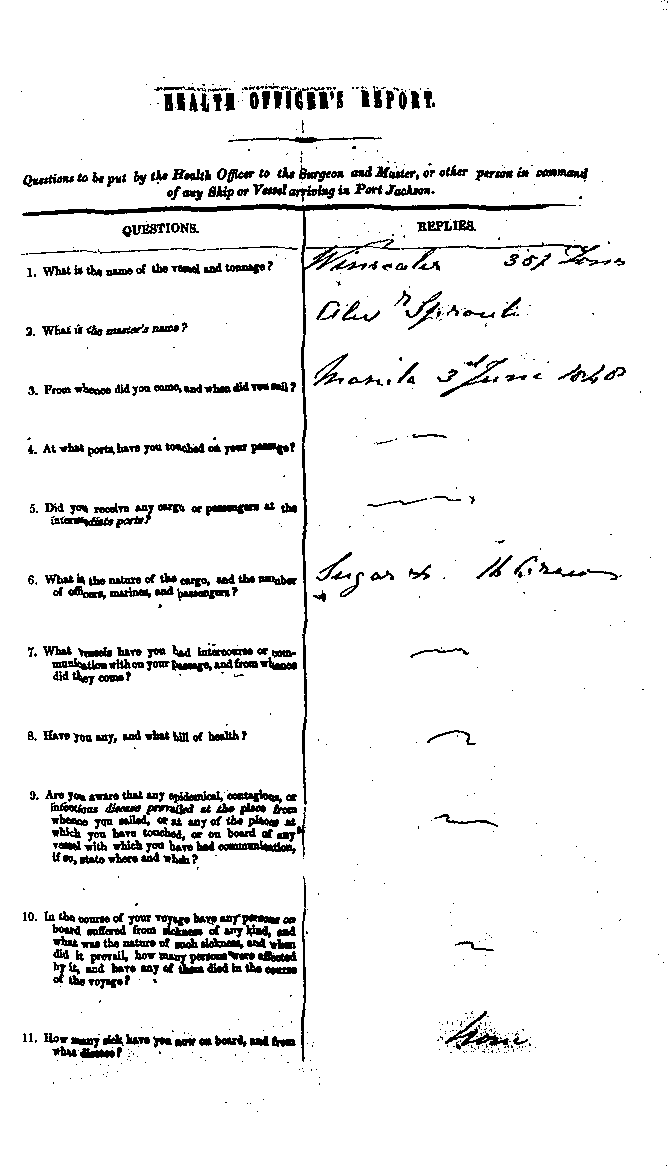 HEALTH OFFICER'S REPORT.
Questions to be put by the Health Officer to the Surgeon and Master, or other person in command
of any Ship or Vessel arriving in Port Jackson.
QUESTIONS.
REPLIES.
1. What is the name of the vessel and tonnage?
Tons
2. What is the master's name?
Sproul
3. From whence did you come, and when did you sail?
Manila 3rd June 1840
4. At what ports have you touched on your passage?
5. Did you receive any cargo or passengers at the
intermediate ports?
6. What is the nature of the cargo, and the number
of officers, marines, and passengers?
Sugar
7. What vessels have you had intercourse or com-
munication with on your passage, and from whence
did they come?
8. Have you any, and what bill of health?
9. Are you aware that any epidemical, contagious, or
infectious disease prevailed at the place from
whence you sailed, or at any of the places at
which you have touched, or on board of any
vessel with which you have had communication,
if so, state where and when?
10. In the course of your voyage have any persons on
board suffered from sickness of any kind, and
what was the nature of such sickness, and when
did it prevail, how many persons were affected
by it, and have any of them died in the course
of the voyage?
11. How many sick have you now on board, and from
what disease?
None